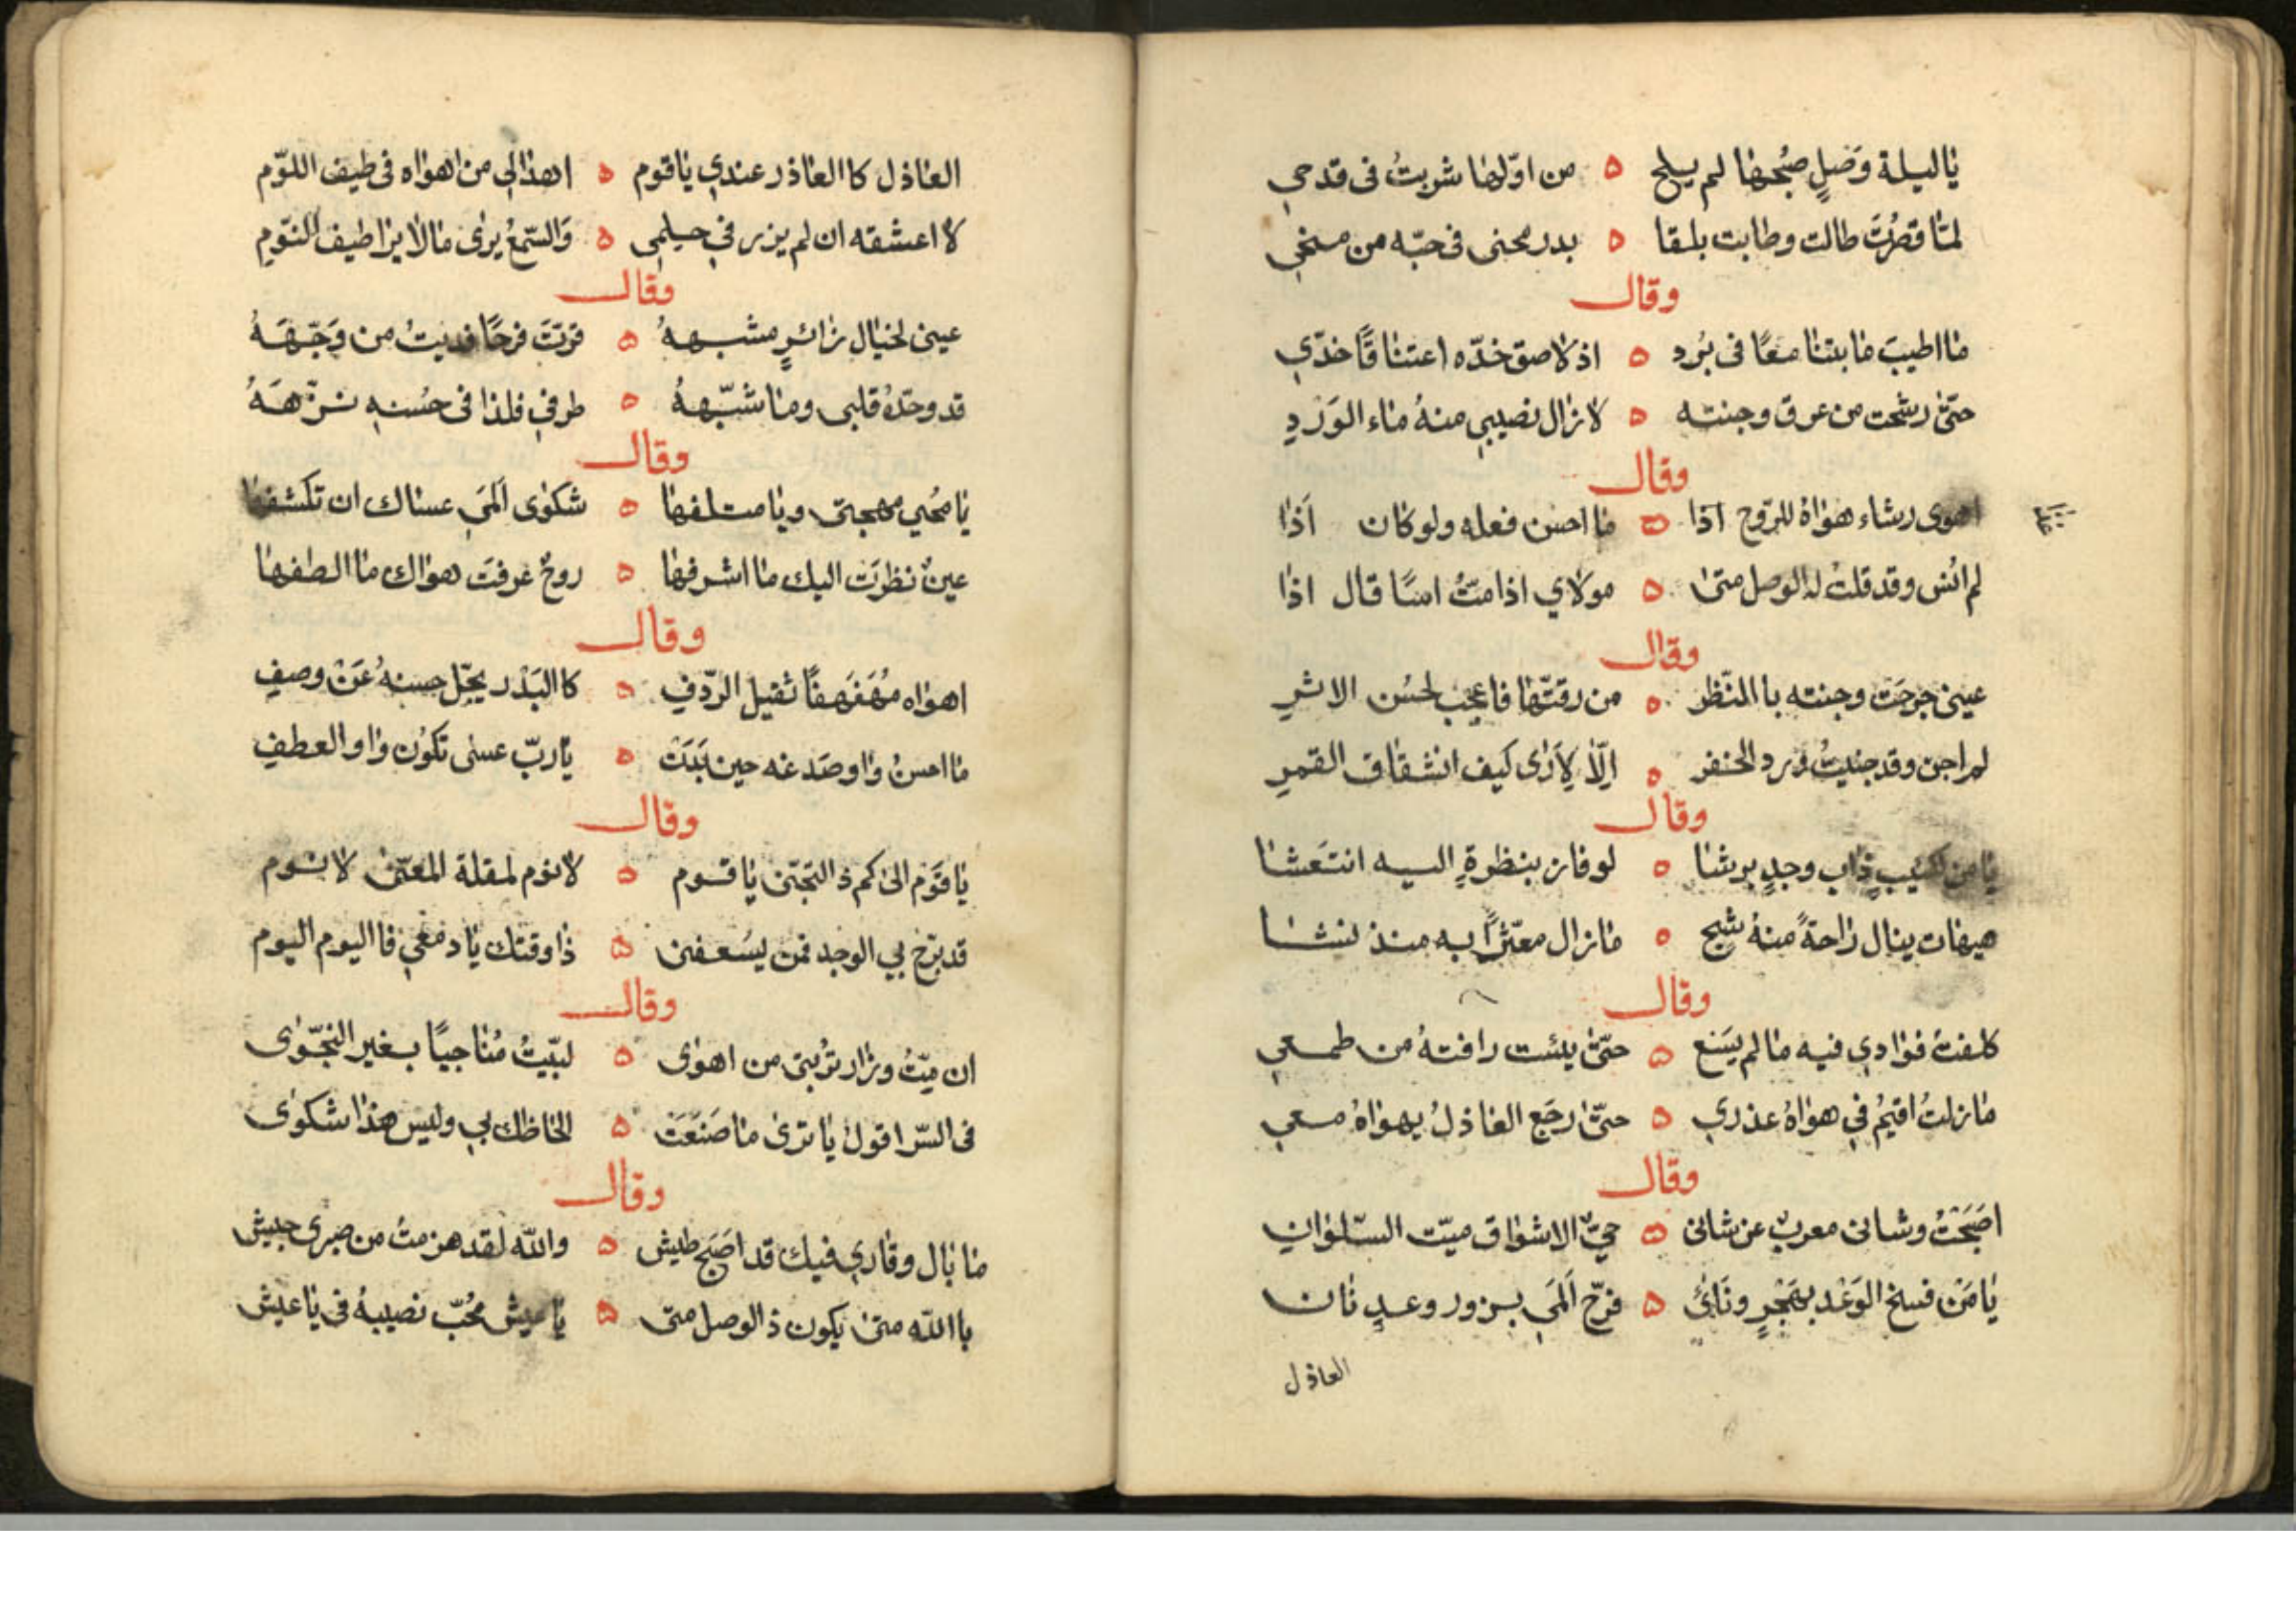 يا ليلة وَصْلٍ صُبْحُها لم يلح ه من اوّلها شربتُ فى قدحي
لمّا قصُرَت طالت وطابت بلقا ه بدر محنى فى حبّه من منحي
وقال
ما اطيبَ ما بتنا معًا فى بُرد ه اذ لاصق خدّه اعتناقًا خدّي
حتّى رشحت من عرق وجنته ه لا زال نصيبي منهُ ماء الوَرْدِ
وقال
اهوى رشاء هواهُ للرّوح اذا ه ما احسن فعله ولو كان اَذا
لم انس وقد قلتُ له الوصل متى ه مولاي اذا متُّ اسًا قال اذا
وقال
عينى جرحَت وجنته با المنّظر ه من رقتّها فاعجب لحسُن الاثرِ
لم اجن وقد جنيتُ ورد الخفر ه اِلّا لِاَرٰى كيف انشقاق القمرِ
وقال
يا من لكئيبٍ ذاب وجدٍ برشا ه لو فاز بنظرةٍ اليه انتعَشا
هيهات ينال راحةً منهُ شبح ه ما زال معثّرًا به منذ نشا
وقال
كلفتُ فوادي فيه ما لم يسَع ه حتّى يئست رافتهُ من طمعي
ما زلتُ اقيمُ في هواهُ عذري ه حتّى رجَع العاذلُ يهواهُ معي
وقال
اصَبَحْتُ وشانى معربٌ عن شانى ه حيّ الاشواق ميّت السّلوانِ
يا مَنْ فسخ الوَعْد بهَجْرٍ ونَائً ه فرّح اَمَلي بزور وعدٍ ثان
العاذل
العاذل كا العاذر عندي يا قوم ه اهدٰا لي من اهواه فى طيف اللوّم
لا اعشقه ان لم يزر في حلمي ه وَالسّمعُ يرٰى ما لا يرٰا طيف النّوم
وقال
عينى لخيال زائرٍ مشبههُ ه قرّتَ فرحًا فديتُ من وَجّهَهُ
قد وحّدهُ قلبى وما شبّههُ ه طرفي فلذا فى حُسنهِ نزّهَهُ
وقال
يا مُحْيي مهجتى ويا متلفها ه شكوٰى اَلمَي عساك ان تكشفها
عينٌ نظرَت اليك ما اشرفها ه روحٌ عَرفَت هواك ما الطفها
وقال
اهواه مُهَفهفًا ثقيل الرّدفِ ه كا البَدْر يجّل حسنهُ عَنْ وصفِ
ما احسنُ واو صَدغه حين بَدَتْ ه يا ربّ عسٰى تكوُن واو العطفِ
وقال
يا قوَم الى كم ذ التجّنى يا قوم ه لا نوم لمقلة المعنّى لا نوم
قد برّح بي الوجد فمن يسُعفنى ه ذا وقتك يا دمعي فا اليوم اليوم
وقال
ان متُّ وزار تُربتى من اهوٰى ه لبّيتُ مُناجيًا بغير النّجوٰى
فى السّر اقول يا ترى ما صَنَعَتْ ه الحاظك بي وليس هذا شكوٰى
وقال
ما بال وقاري فيك قد اصَبح طيش ه واللّه لقد هزمتُ من صبرى جيش
با اللّه متى يكون ذ الوصل متى ه يا عيش مُحبّ نصيبهُ فى يا عيش